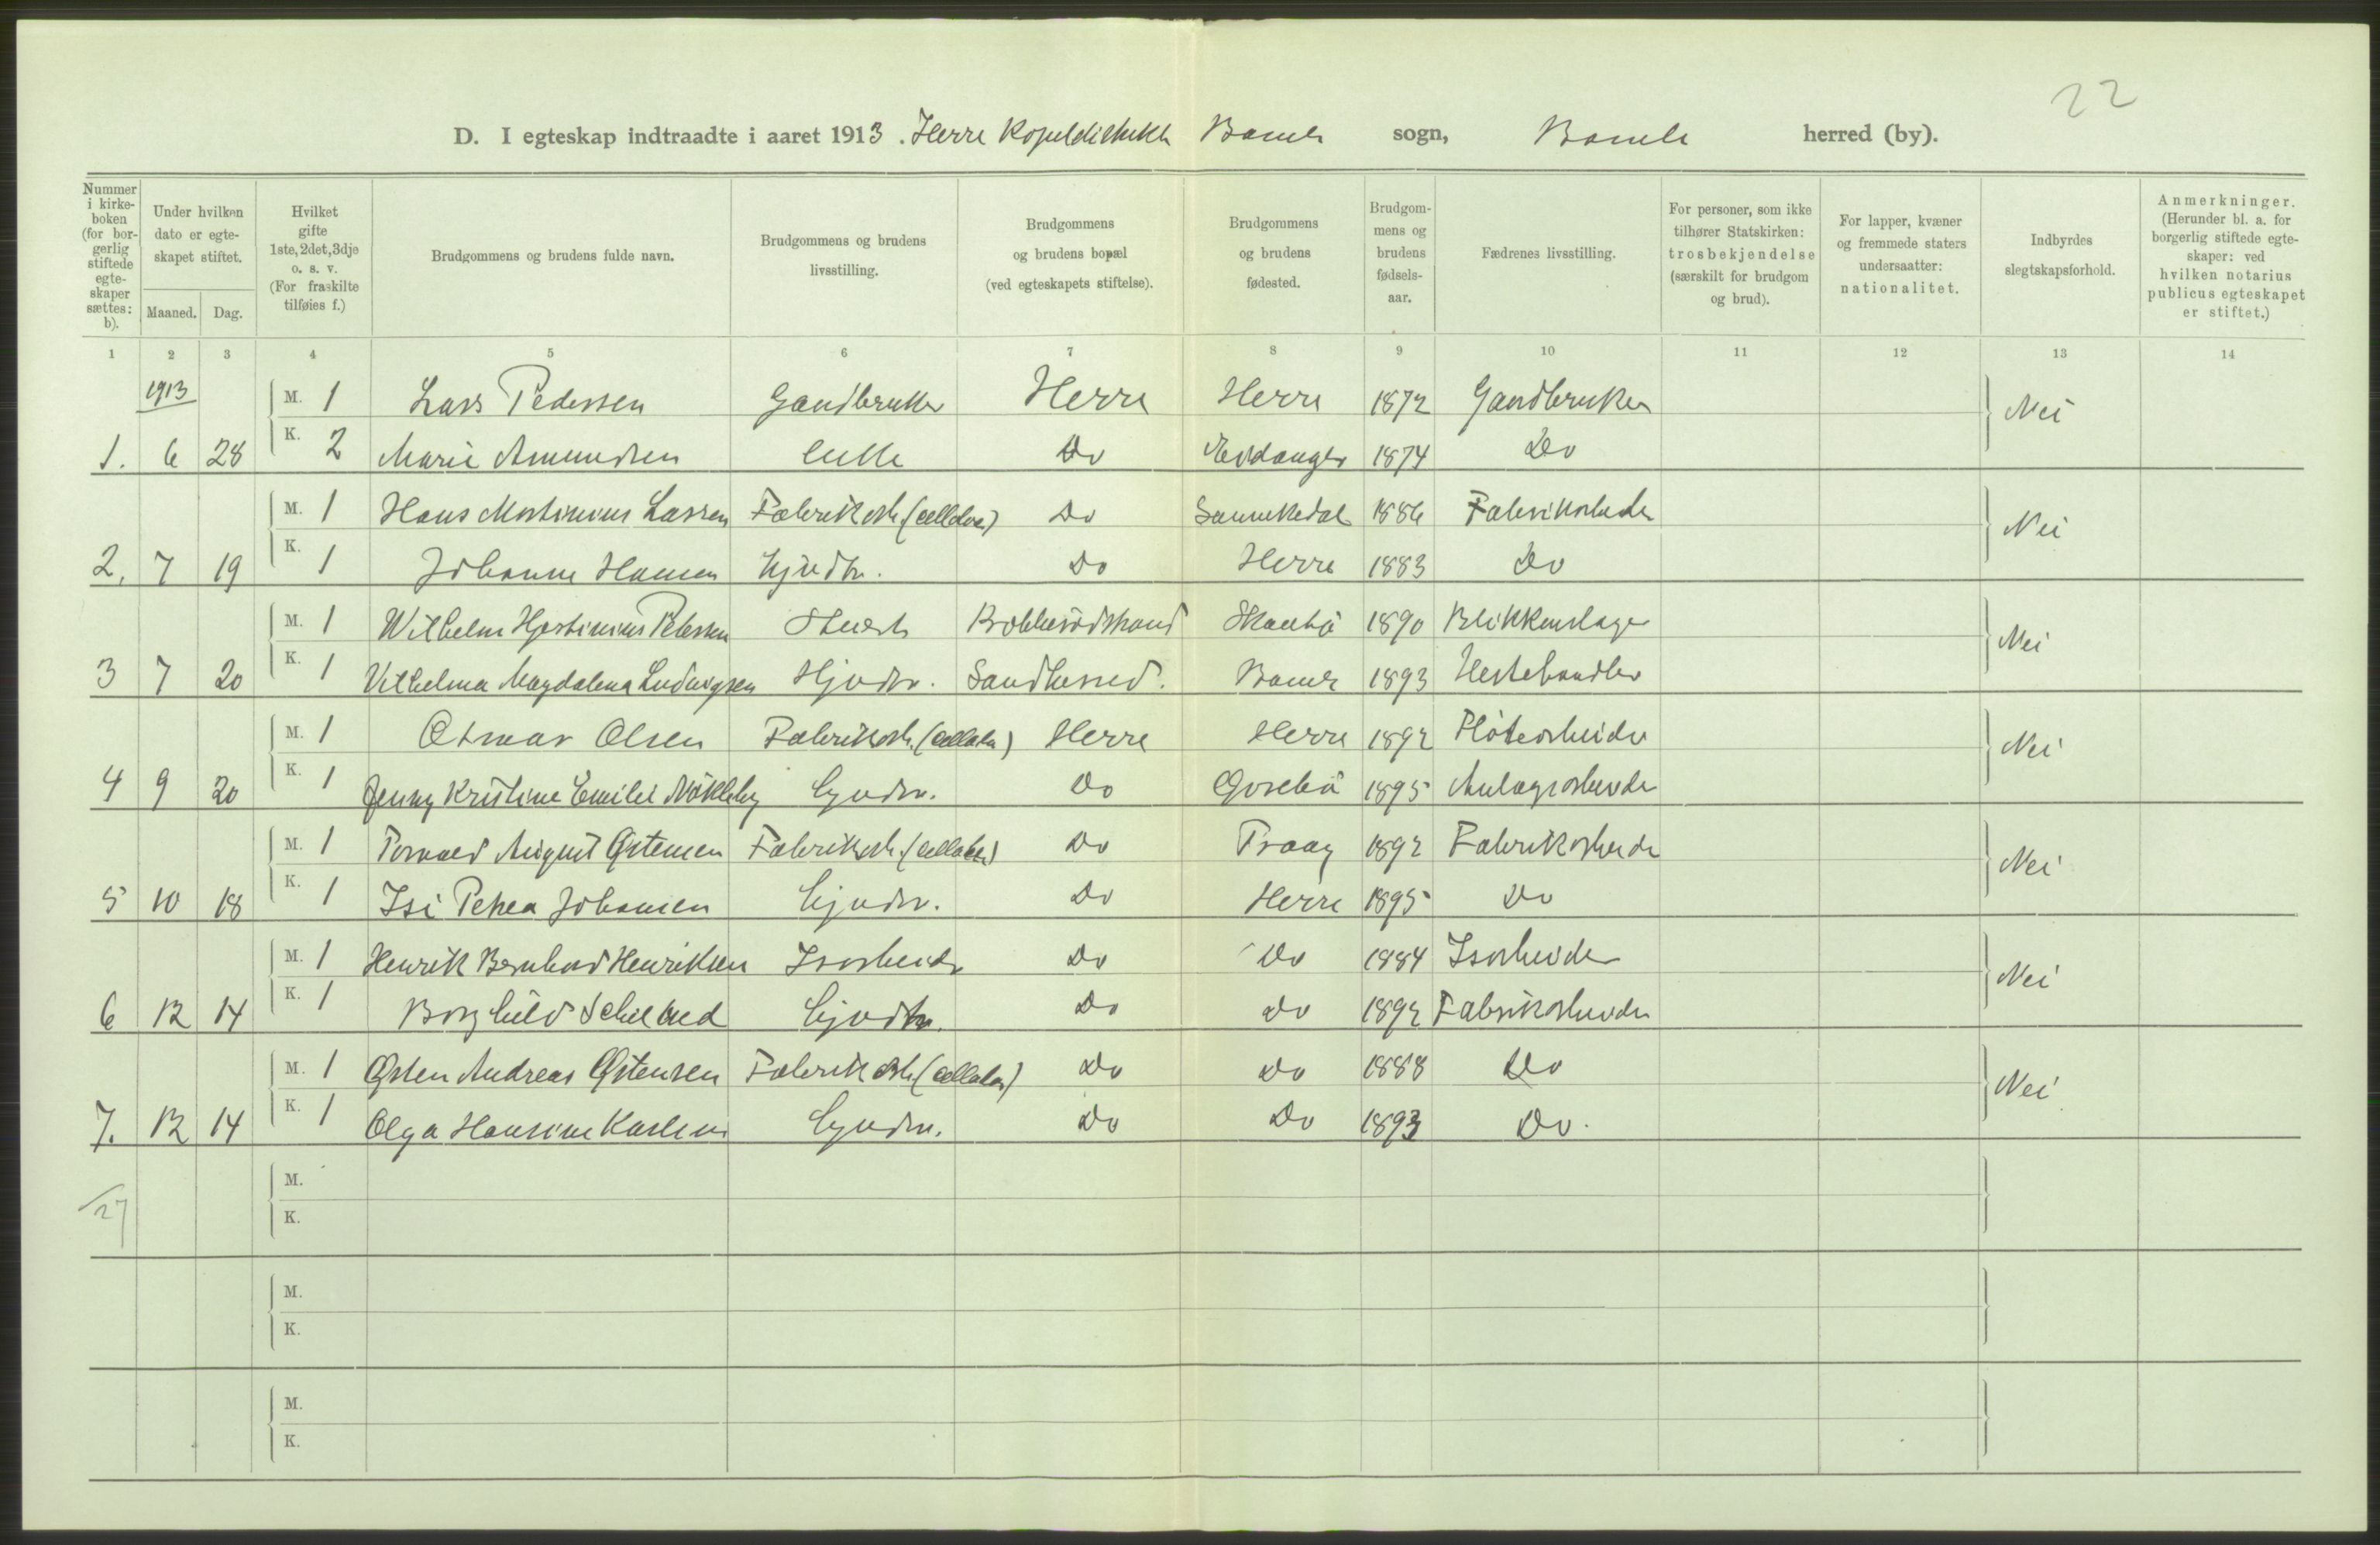 22
D. I egteskap indtraadte i aaret 1913. Herre Bamle sogn, Bamle herred (by).
Nummer i kirkeboken (for borgerlig stiftede egteskaper sættes: b).
Under hvilken dato er egteskapet stiftet.
Maaned. Dag.
Hvilket gifte 1ste, 2det, 3dje o. s. v. (For fraskilte tilføies f.)
Brudgommens og brudens fulde navn.
Brudgommens og brudens livsstilling.
Brudgommens og brudens bopæl (ved egteskapets stiftelse).
Brudgommens og brudens fødested.
Brudgommens og brudens fødselsaar.
Fædrenes livsstilling.
For personer, som ikke tilhører Statskirken: trosbekjendelse (særskilt for brudgom og brud).
For lapper, kvæner og fremmede staters undersaatter: nationalitet.
Indbyrdes slegtskapsforhold.
Anmerkninger. (Herunder bl. a. for borgerlig stiftede egteskaper: ved hvilken notarius publicus egteskapet er stiftet.)
1 2 3 4 5 6 7 8 9 10 11 12 13 14
1913
M. 1 Lars Pedersen Gaardbruker Herre Herre 1872 Gaardbruker Nei
1. 6 28 K. 2 Marie Amundsen Enke Do Eidanger 1874 Do
M. 1 Hans Mortinius Larsen Fabrikarb. Do Sannikedal 1886 Fabrikarbeider Nei
2. 7 19 K. 1 Johanne Hansen Hjvdtr. Do Herre 1883 Do
M. 1 Wilhelm Hjartinius Petersen Skaatø 1890 Blikkenslager Nei
3 7 20 K. 1 Vilhelma Magdalena Ludvigsen Hjvdtr. Bamle 1893 Hestehandler
M. 1 Otmar Olsen Fabrikarb. Herre Herre 1892 Fløterarbeider Nei
4 9 20 K. 1 Jenny Kristine Emilie Nøkleby Do 1895 Anlægsarbeider
M. 1 August Østensen Fabrikarb. Do 1892 Fabrikarbeider Nei
5 10 18 K. 1 Petrea Johansen Do Herre 1895 Do
M. 1 Henrik Bernhard Henriksen Isarbeider Do Do 1884 Isarbeider Nei
6 12 14 K. 1 Borghild Do Do 1892 Fabrikarbeider
M. 1 Østen Andreas Østensen Fabrikarb. Do Do 1888 Do Nei
7. 12 14 K. 1 Olga Hansine Karlsen Do Do 1893 Do.
/27
M.
K.
M.
K.
M.
K.